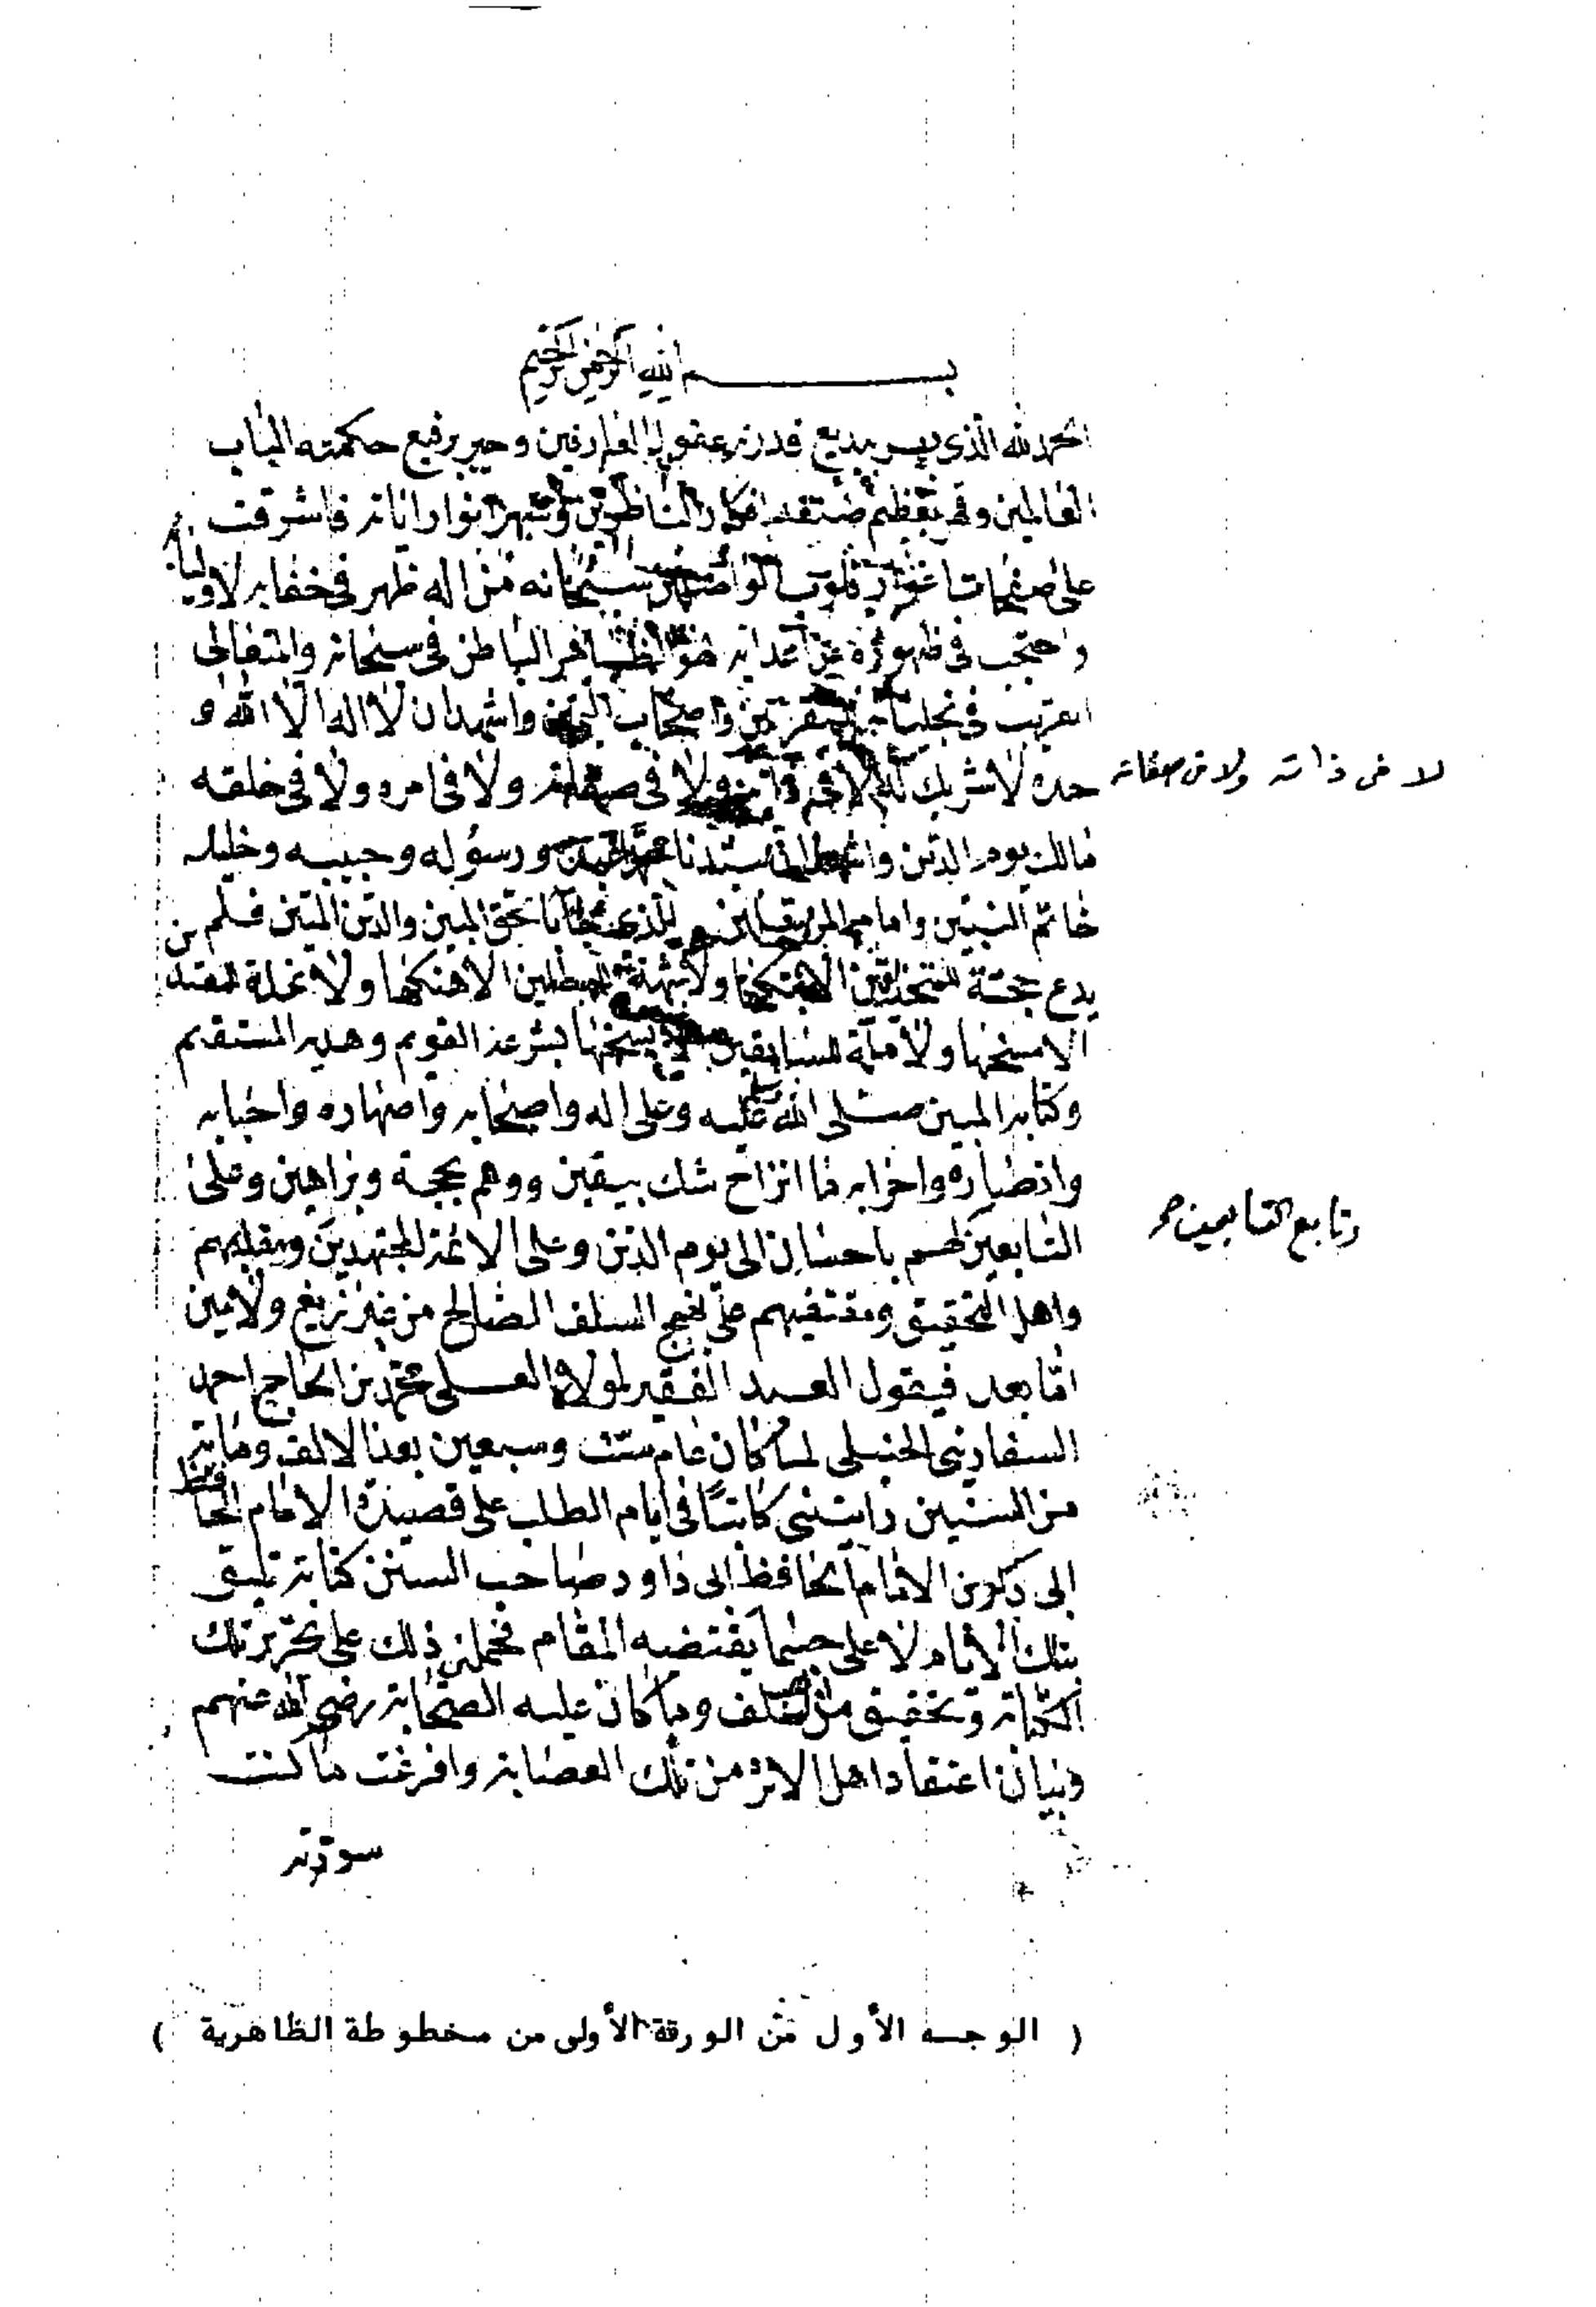 بسم الله الرحمن الرحيم
الحمد لله الذي ببديع قدرته عقول العارفين وحير برفيع حكمته الباب
العالمين وفي تعظيم افكار الناظرين انوار اياته فاشرقت
على صفحات قلوب سبحانه من اله ظهر في خفايه لاوليائه
واحتجب في ظهوره عن اعدايه هو الظاهر الباطن في سبحاته والمتعالى
القريب في تجلياته للمقربين واصحاب اليمين واشهد ان لا اله الا الله و
حده لا شريك له لا في ذاته ولا في صفاته ولا في امره ولا في خلقه
لا في ذاته ولا في صفاته
مالك يوم الدين واشهد ان سيدنا محمدا عبده ورسوله وحبيبه وخليله
خاتم النبيين وامام المرسلين الذي جاءنا بالحق المبين والدين المتين فلم
يدع حجة ولا شبهة للمبطلين الا هتكها ولا نحلة
الا مسخها ولا ملة للسابقين الا نسخها بشرعه القويم وهديه المستقيم
وكتابه المبين صلى الله عليه وسلم وعلى اله واصحابه واصهاره واحبابه
وانصاره واحزابه ما انزاح شك بيقين ووهم بحجة وبراهين وعلى
التابعين لهم باحسان الى يوم الدين وعلى الائمة المجتهدين ومقلديهم
وتابع التابعين
واهل التحقيق ومقتفيهم على نهج السلف الصالح من غير زيغ ولا مين
اما بعد فيقول العبد الفقير لمولاه العلي محمد بن الحاج احمد
السفاريني الحنبلي لما كان عام ست وسبعين بعد الالف ومائة
من السنين رايتني كاتبا في ايام الطلب على قصيدة الامام الحافظ
ابي بكر بن الامام الحافظ ابي داود صاحب السنن كتابة تليق
بتلك الايام لا على حسبما يقتضيه المقام فحملني ذلك على تحرير تلك
الكتابة وتحقيق مذهب السلف وما كان عليه الصحابة رضي الله عنهم
وبيان اعتقاد اهل الاثر من تلك العصابة وافرغت ما كنت
سودته
( الوجه الأول من الورقة الأولى من مخطوطة الظاهرية )